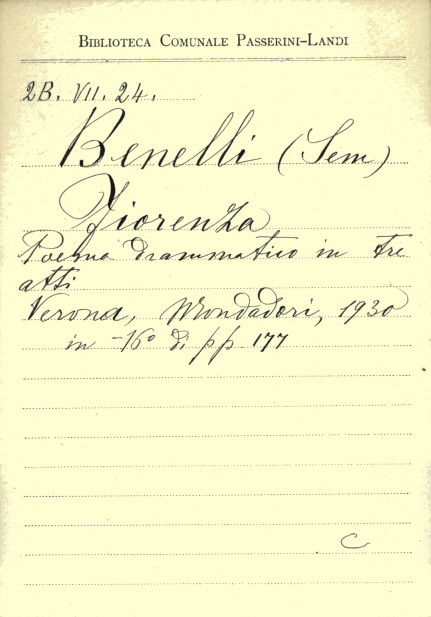 BIBLIOTECA COMUNALE PASSERINI-LANDI
2B. VII. 24.
Benelli (Sem)
Fiorenza
Poema drammatico in tre
atti
Verona, Mondadori, 1930
in -16° di pp. 177
C